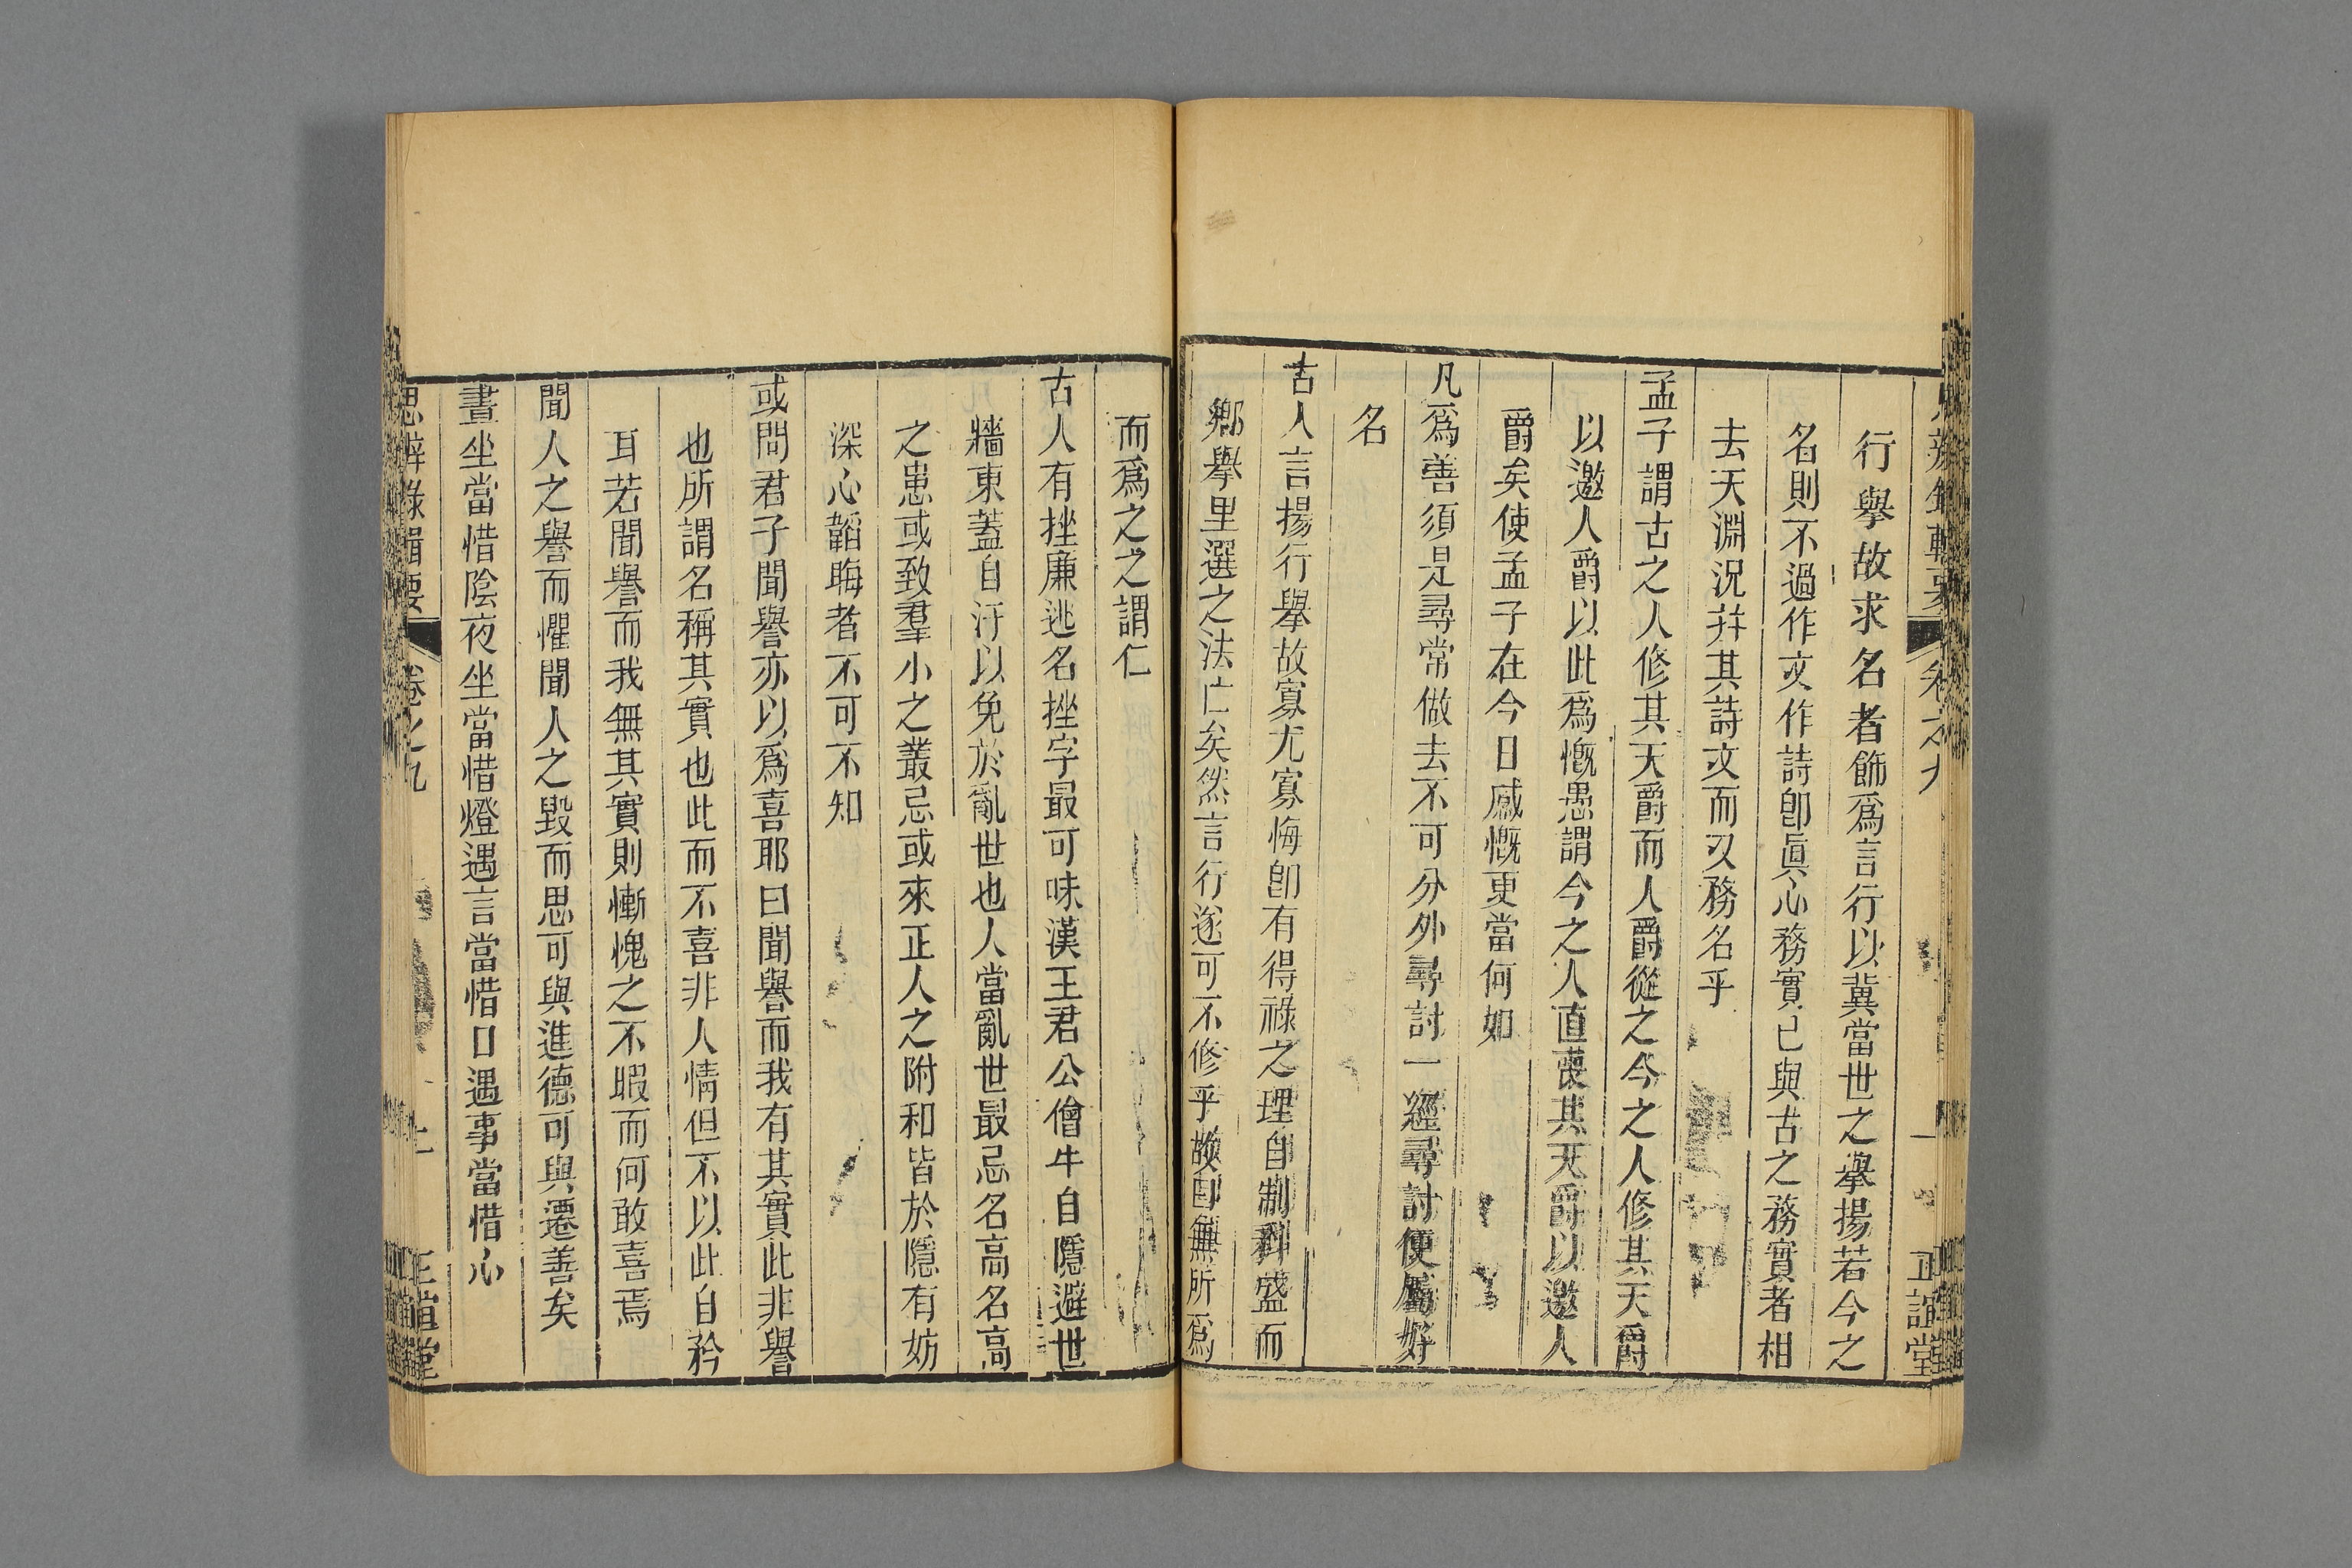 思辨錄輯要 卷之九 一 正誼堂
行舉故求名者飾爲言行以冀當世之舉揚若今之
名則不過作文作詩卽眞心務實已與古之務實者相
去天淵況幷其詩文而又務名乎
孟子謂古之人修其天爵而人爵從之今之人修其天爵
以邀人爵以此爲慨愚謂今之人直喪其天爵以邀人
爵矣使孟子在今日感慨更當何如
凡爲善須是尋常做去不可分外尋討一經尋討便屬好
名
古人言揚行舉故寡尤寡悔卽有得祿之理自制科盛而
鄉舉里選之法亡矣然言行遂可不修乎故曰無所爲
而爲之之謂仁
古人有挫廉逃名挫字最可味漢王君公儈牛自隱避世
牆東蓋自汙以免於亂世也人當亂世最忌名高名高
之患或致羣小之叢忌或來正人之附和皆於隱有妨
深心韜晦者不可不知
或問君子聞譽亦以爲喜耶曰聞譽而我有其實此非譽
也所謂名稱其實也此而不喜非人情但不以此自矜
耳若聞譽而我無其實則慚愧之不暇而何敢喜焉
聞人之譽而懼聞人之毀而思可與進德可與遷善矣
晝坐當惜陰夜坐當惜燈遇言當惜口遇事當惜心
思辨錄輯要 卷之九 正誼堂